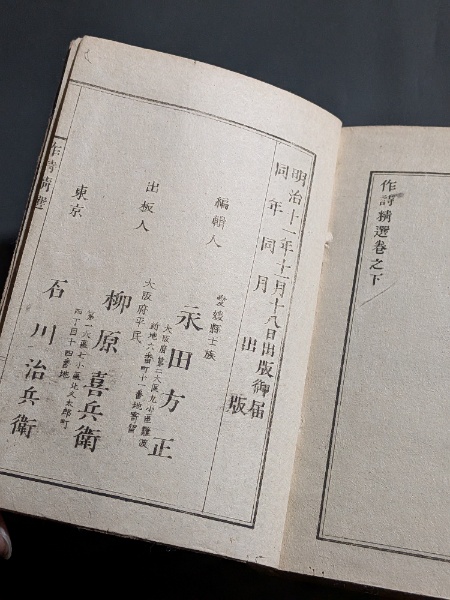 作詩精選卷之下
明治十一年十一月十八日出版御届
同年同月　出版
編輯人
愛媛縣士族
永田方正
大阪府第三大區九小區難波
新地六番町十一番地寄留
出板人
大阪府平民
柳原喜兵衛
第一大區七小區北久太郎町
四丁目十四番地
東京
石川治兵衛
作詩精選